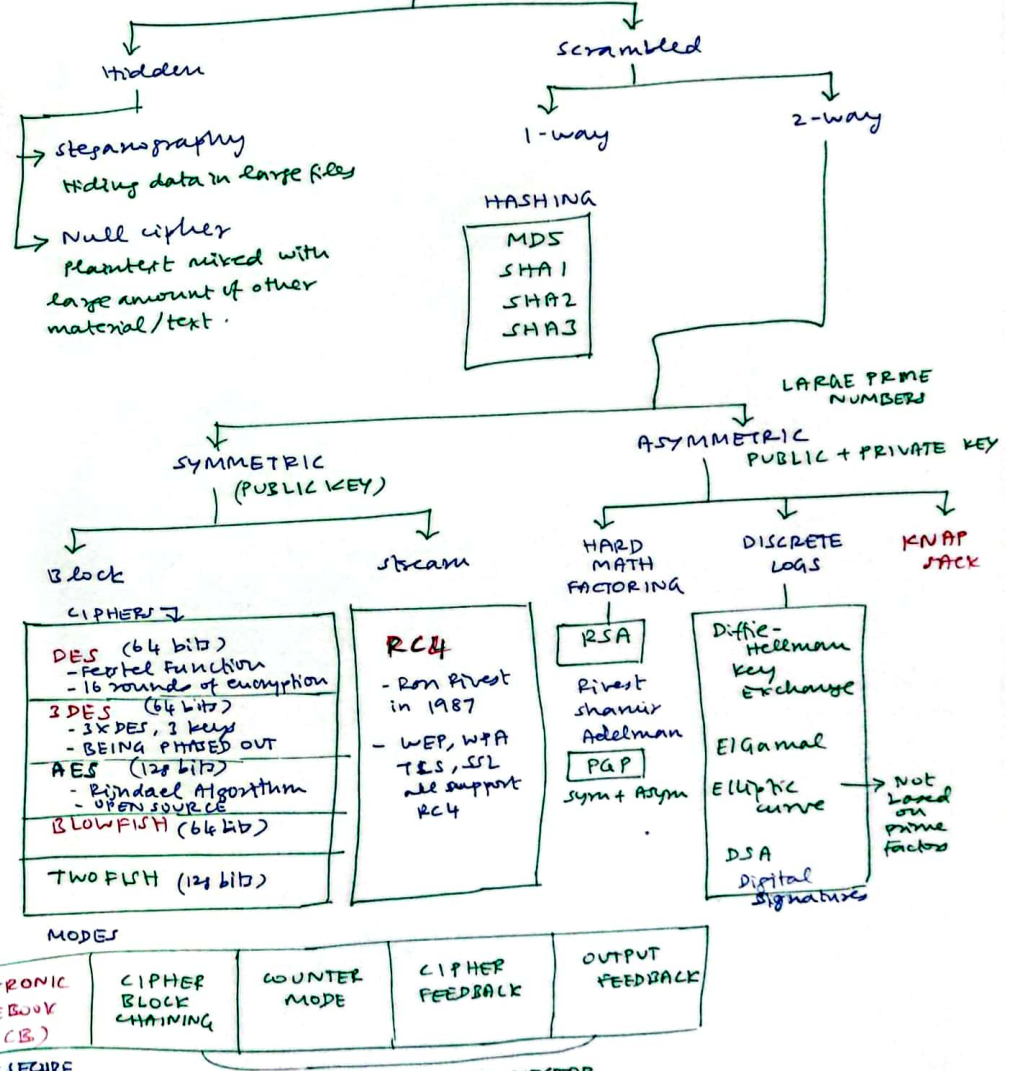 Hidden
Scrambled
1-way
2-way
Steganography
Hiding data in large files
Null cipher
Plaintext mixed with
large amount of other
material/text.
HASHING
MD5
SHA1
SHA2
SHA3
LARGE PRIME
NUMBERS
SYMMETRIC
(PUBLIC KEY)
ASYMMETRIC
PUBLIC + PRIVATE KEY
Block
Stream
HARD
MATH
FACTORING
DISCRETE
LOGS
KNAP
SACK
CIPHERS
DES (64 bits)
- Feistel Function
- 16 rounds of encryption
3DES (64 bits)
- 3xDES, 3 keys
- BEING PHASED OUT
AES (128 bits)
- Rijndael Algorithm
- OPEN SOURCE
BLOWFISH (64 bits)
TWOFISH (128 bits)
RC4
- Ron Rivest
in 1987
- WEP, WPA
TLS, SSL
all support
RC4
RSA
Rivest
Shamir
Adelman
PGP
Sym + Asym
Diffie-
Hellman
Key
Exchange
ElGamal
Elliptic
curve
Not
based
on
prime
factors
DSA
Digital
Signatures
MODES
RONIC
BOOK
CB.)
CIPHER
BLOCK
CHAINING
COUNTER
MODE
CIPHER
FEEDBACK
OUTPUT
FEEDBACK
SECURE